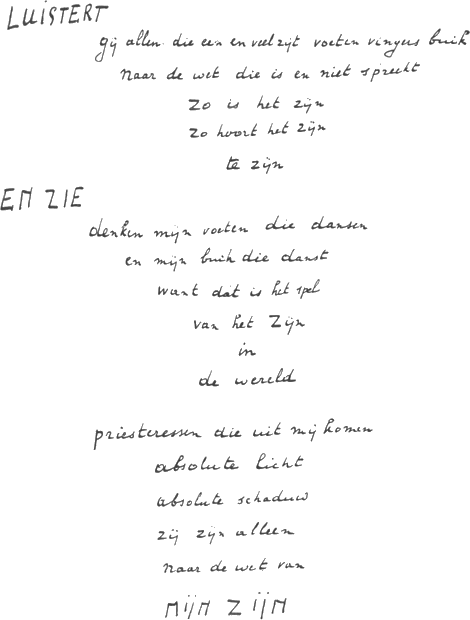 LUISTERT
gij allen die een en veel zijt voeten vingers buik
naar de wet die is en niet spreekt
zo is het zijn
zo hoort het zijn
te zijn
EN ZIE
denken mijn voeten die dansen
en mijn buik die danst
want dat is het spel
van het Zijn
in
de wereld
priesteressen die uit mij komen
absolute licht
absolute schaduw
zij zijn alleen
naar de wet van
MIJN ZIJN